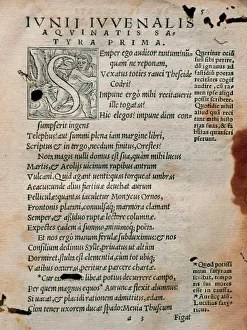 5
IVNII IVVENALIS
AQVINATIS SA-
TYRA PRIMA.
SEmper ego auditor tantum? nun
quam ne reponam,
Vexatus toties rauci Theseide
Codri?
Impune ergo mihi recitauerit
ille togatas?
Hic elegos? impune diem con
sumpserit ingens
Telephus? aut summi plena iam margine libri,
Scriptus & in tergo, nec dum finitus, Orestes?
Nota magis nulli domus est sua, quam mihi lucus
Martis, & Aeolijs uicinum rupibus antrum
Vulcani. Quid agant uenti, quas torqueat umbras
Aeacus, unde alius furtiuæ deuehat aurum
Pelliculæ: quantas iaculetur Monychus Ornos,
Frontonis platani, conuulsaq; marmora clamant
Semper, & assiduo ruptæ lectore columnæ.
Expectes eadem a summo, minimoq; poeta.
Et nos ergo manum ferulæ subduximus: & nos
Consilium dedimus Syllæ, priuatus ut altum
Dormiret. stulta est clementia, cum tot ubique
Vatibus occurras, perituræ parcere chartæ.
Cur tamen hoc libeat potius decurrere campo,
Per quem magnus equos Auruncæ flexit alumnus:
Si uacat, & placidi rationem admittitis, edam.
Cum tener uxorem ducat spado: Meuia Thuscum
a 3 Figat
Quæritur
sibi
diu
ad
scribendum
Quare ad saty
ras
scribendas ani
mum
rit.
Lucilius saty
ricus.